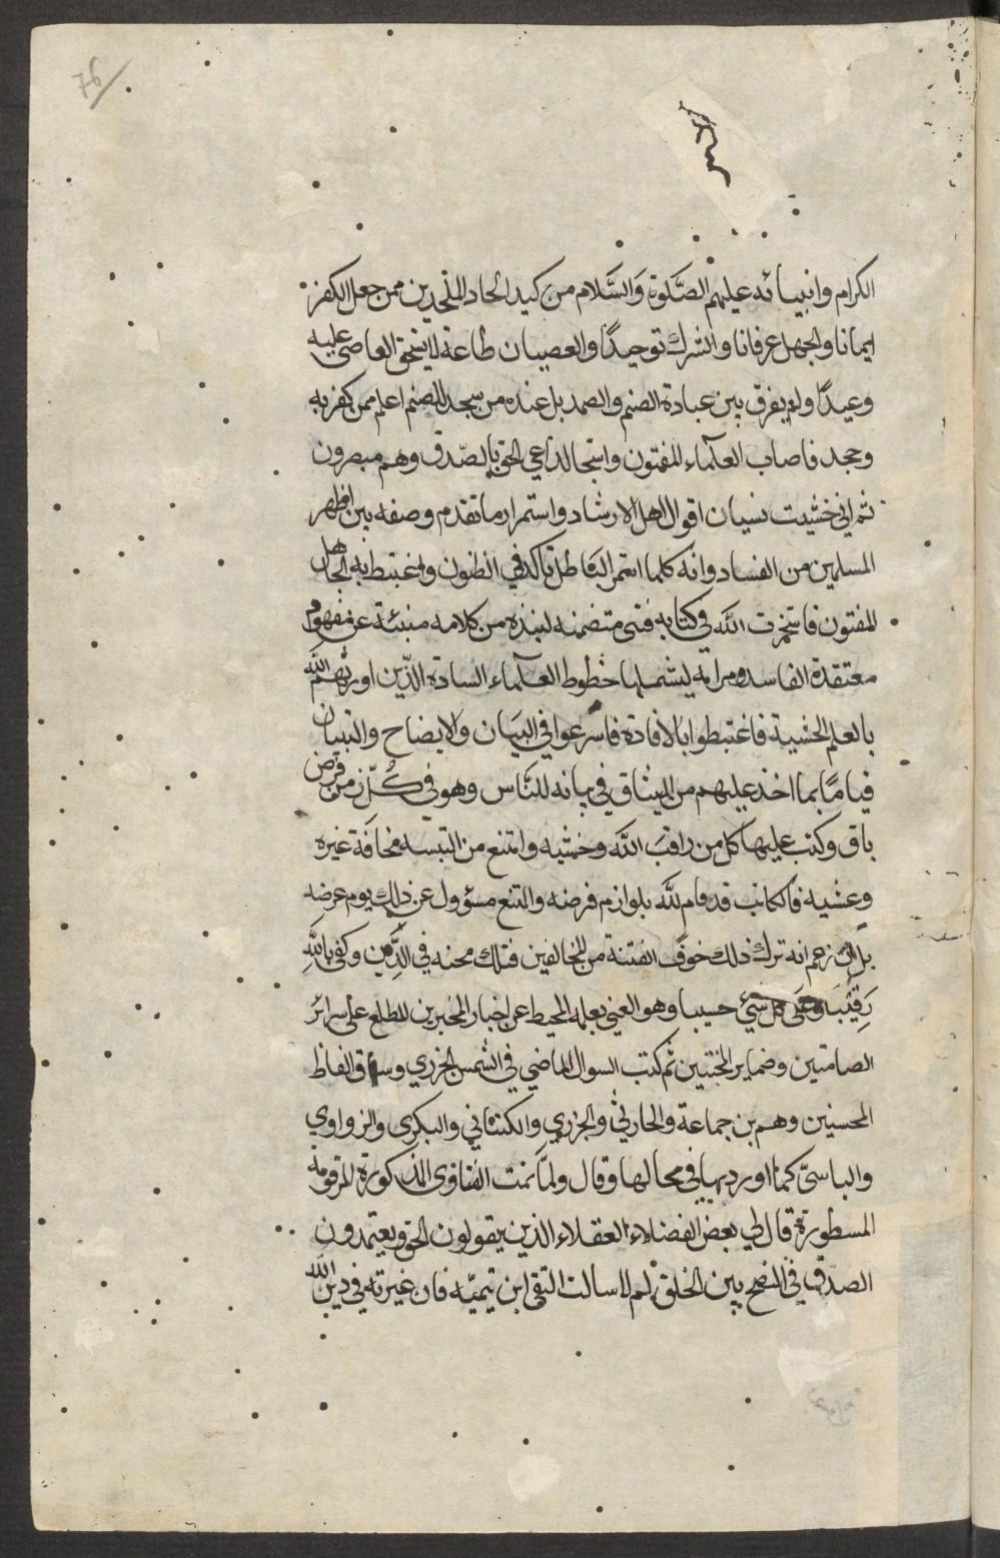 76
الكرام وانبيائه عليهم الصَّلوة وَالسَّلام من كيد الحاد الملحدين ممن جعل الكفر
ايمانا والجهل عرفانا والشرك توحيدًا والعصيان طاعة لا يستحق العاصي عليه
وعيدًا ولم يفرق بين عبادة الصنم والصمد بل عنده من سجد للصنم اعلم ممن كفر به
وجحد فاصاب العلماء المفتون واستجا لداعي الحق بالصّدق وهم مبصرون
ثم اني خشيت نسيان اقوال اهل الارشاد واستمرار ما تقدم وصفه بين اظهر
المسلمين من الفساد وانه كلما استمر الباطل تاكد في الظنون واغتبط به الجاهل
المفتون فاستخرت الله في كتابه فتى متضمنه لنبذة من كلامه منبئة عن مفهوم
معتقدة الفاسد ومرامه ليشملها خطوط العلماء السادة الذين اورثهم الله
بالعلم الخشية فاغتبطوا بالافادة فاسرعوا في البيَان والايضاح والتبيان
قيامًا بما اخذ عليهم من الميثاق في بيانه للنَّاس وهو في كُلّ زمن فرض
باق وكتب عليها كل من راقبَ الله وخشيه وامتنع من التبسه مخافة غيره
وعشيه فالكاتب قد قام لله بلوازم فرضه والممتنع مسؤول عن ذلك يوم عرضه
بل ان زعم انه ترك ذلك خوف الفتنة من المخالفين فتلك محنه في الدِّين وكفى بالله
رَقِيْبَا وعَلَى كل شيء حسيبا وهو الغني بعلمه المحيط عن اخبار المخبرين المطلع على سرائر
الصامتين وضماير المخبتين ثم كتب السوال الماضي في الشمس الجزري وساق الفاظ
المحسنين وهم بن جماعة والحارثي والجزري والكتناني والبكري والزواوي
والبالسيّ كما اوردتها في محالها وقال ولمّا تمت الفتاوى المذكورة المرقومة
المسطورة قال لي بعض الفضلاء العقلاء الذين يقولون الحق ويعتمدون
الصدق في النصح بين الخلق لم لا سالت التقي ابن تيميّه فان غيرته في دين الله